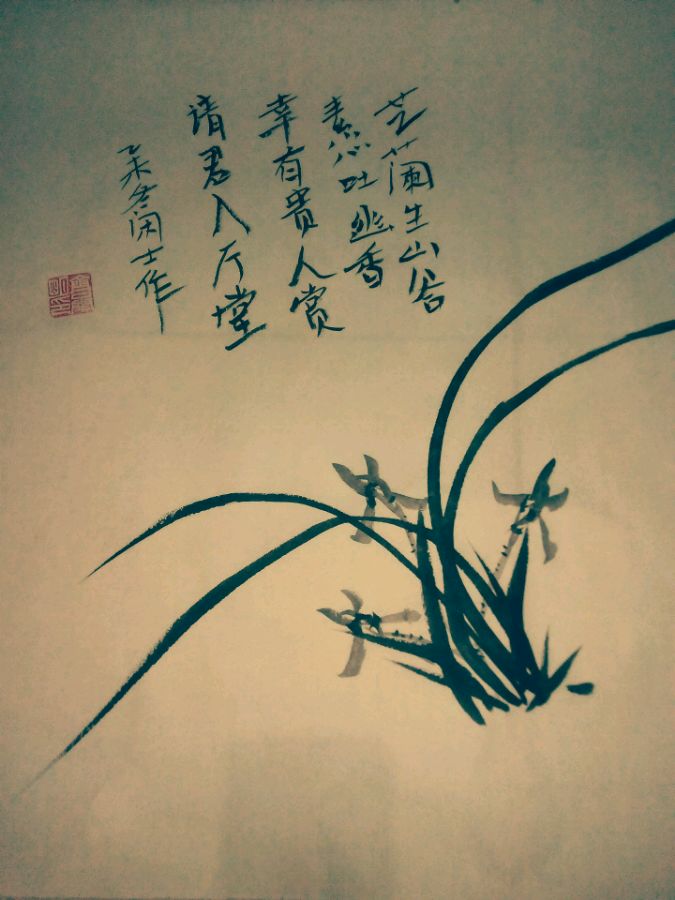 芝兰生山谷
素心吐幽香
幸有贵人赏
请君入厅堂
士作